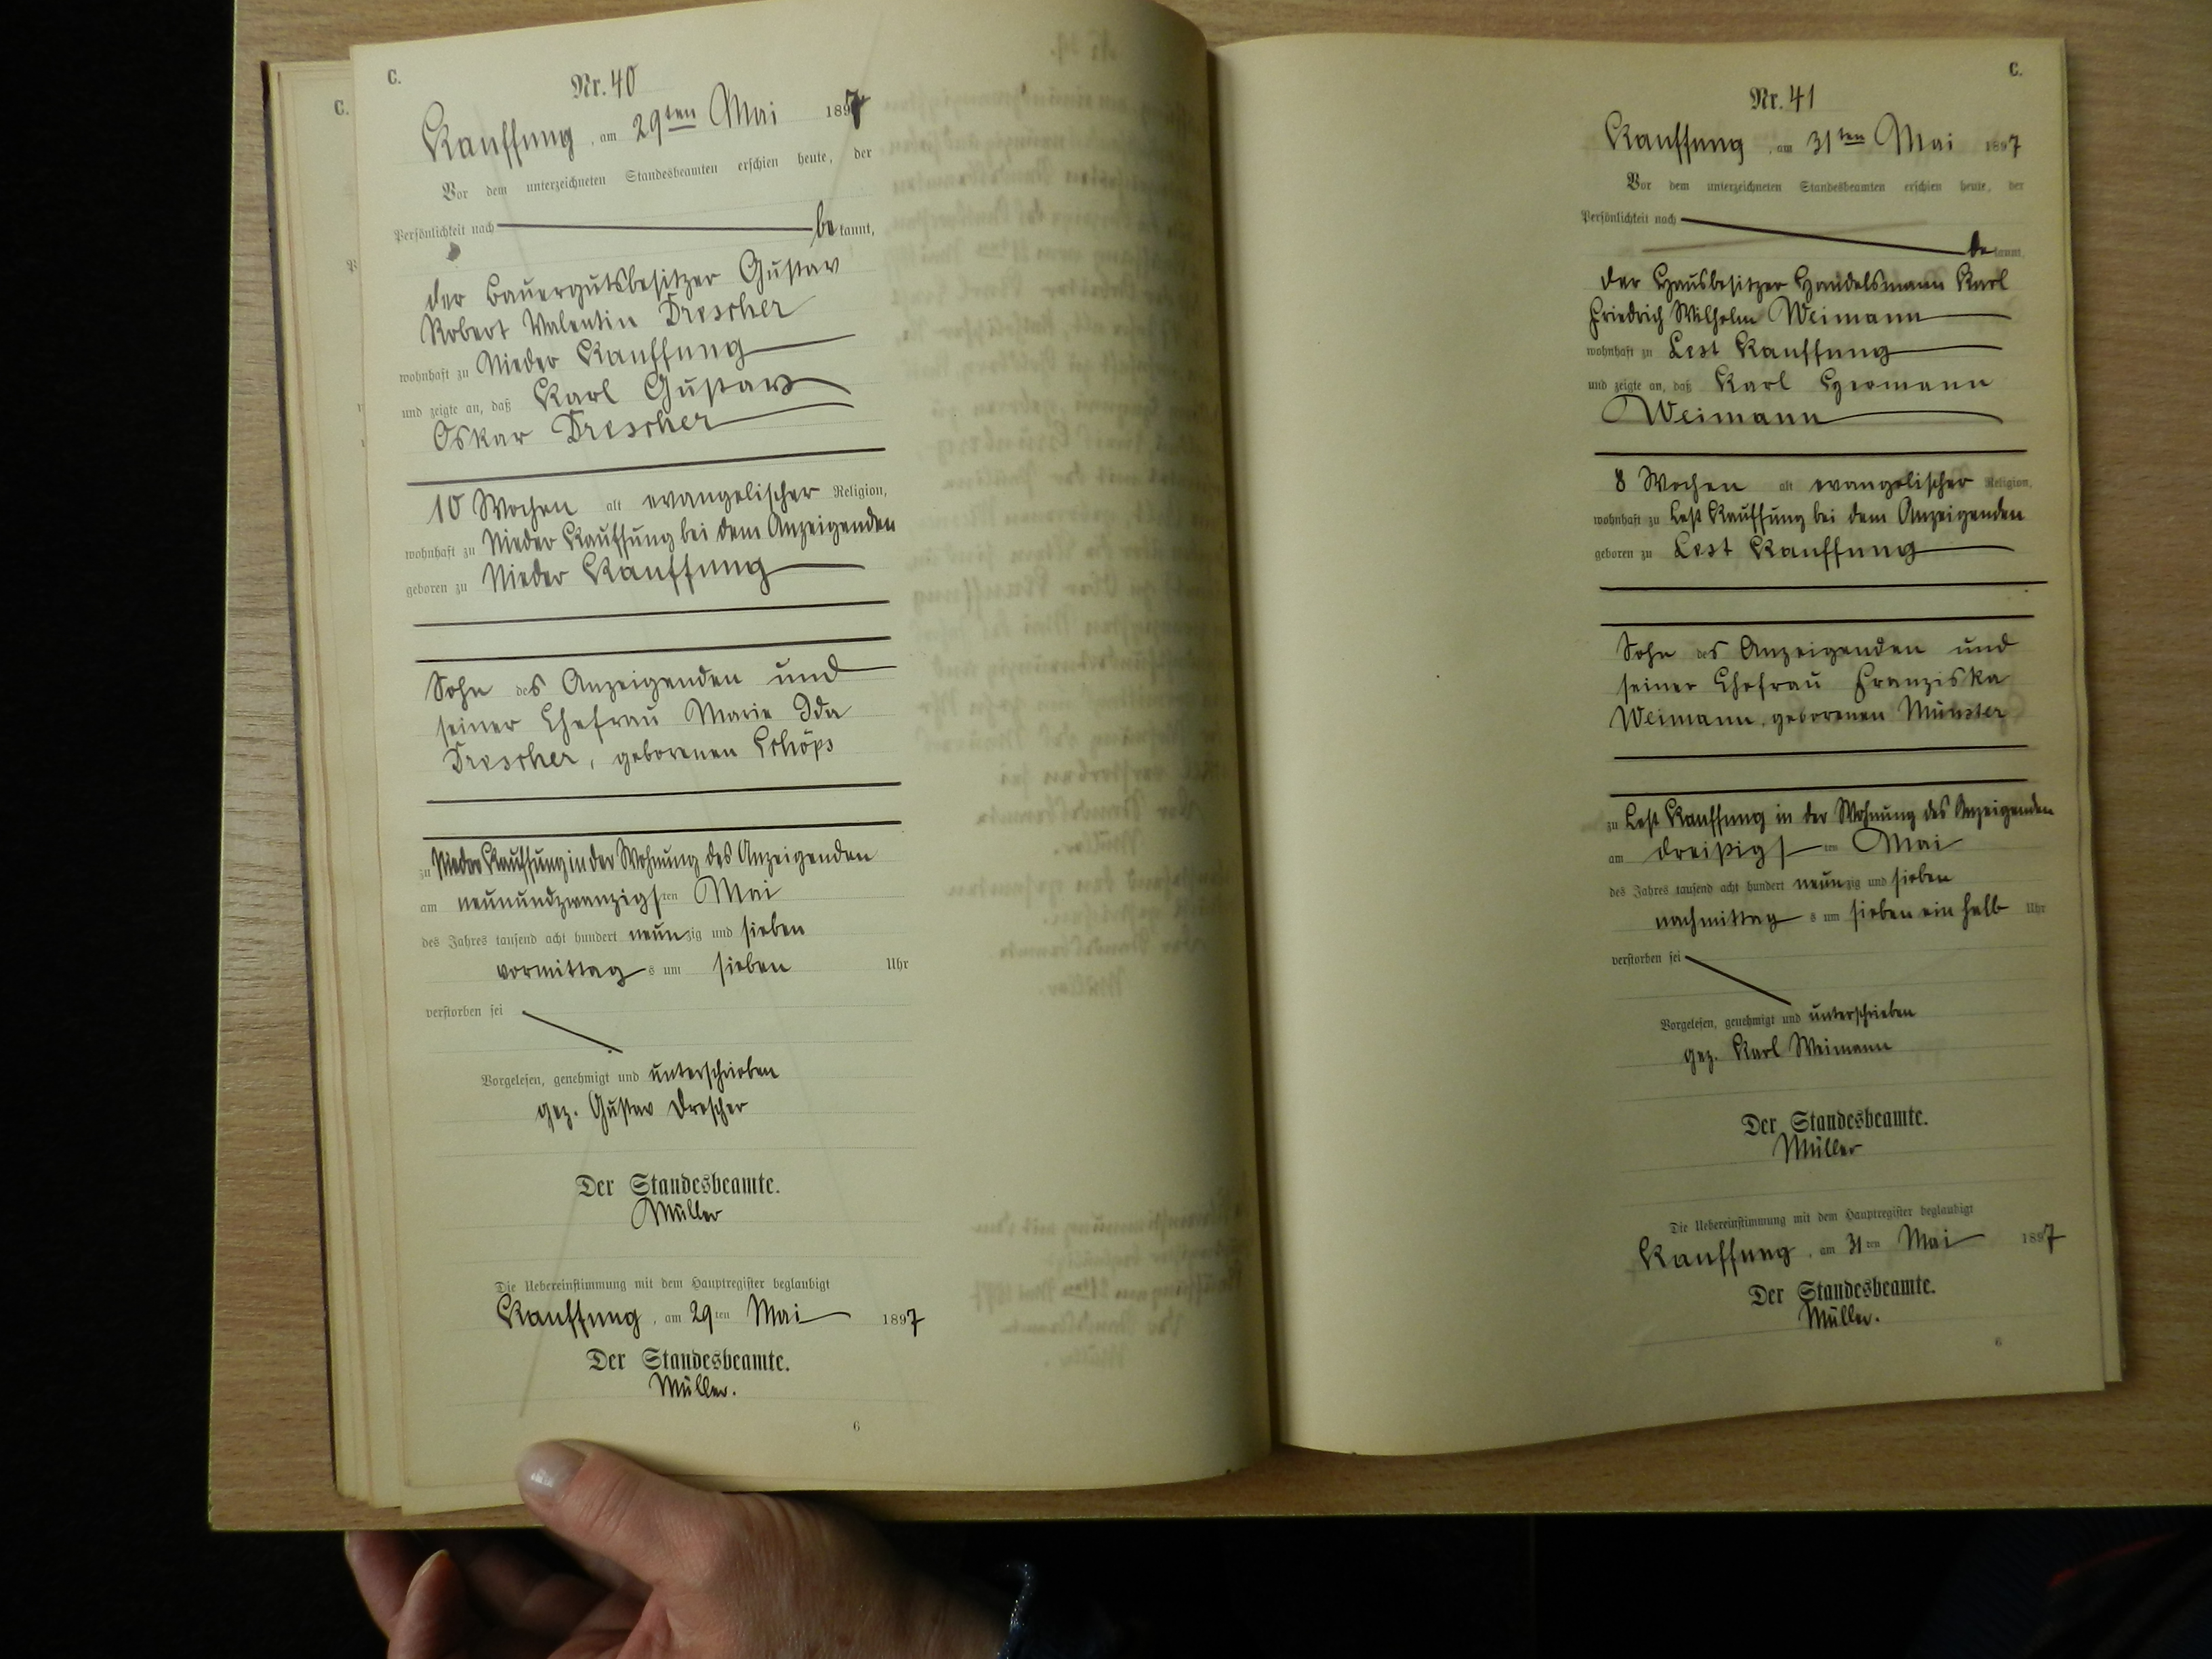 C.
Nr. 40
Kauffung, am 29ten Mai 1897
Vor dem unterzeichneten Standesbeamten erschien heute, der
Persönlichkeit nach be kannt,
der Bauergutsbesitzer Gustav
Robert Valentin Drescher
wohnhaft zu Nieder Kauffung
und zeigte an, daß Karl Gustav
Oskar Drescher
10 Wochen alt evangelischer Religion,
wohnhaft zu Nieder Kauffung bei dem Anzeigenden
geboren zu Nieder Kauffung
Sohn des Anzeigenden und
seiner Ehefrau Marie Ida
Drescher, geborenen Schöps
zu Nieder Kauffung in der Wohnung des Anzeigenden
am neunundzwanzigsten Mai
des Jahres tausend acht hundert neunzig und sieben
vormittags um sieben Uhr
verstorben sei
Vorgelesen, genehmigt und unterschrieben
gez. Gustav Drescher
Der Standesbeamte.
Müller
Die Uebereinstimmung mit dem Hauptregister beglaubigt
Kauffung, am 29ten Mai 1897
Der Standesbeamte.
Müller.
6
C.
Nr. 41
Kauffung, am 31ten Mai 1897
Vor dem unterzeichneten Standesbeamten erschien heute, der
Persönlichkeit nach
be kannt,
der Hausbesitzer Handelsmann Karl
Friedrich Wilhelm Weimann
wohnhaft zu Lest Kauffung
und zeigte an, daß Karl Hermann
Weimann
8 Wochen alt evangelischer Religion,
wohnhaft zu Lest Kauffung bei dem Anzeigenden
geboren zu Lest Kauffung
Sohn des Anzeigenden und
seiner Ehefrau Franziska
Weimann, geborenen Münster
zu Lest Kauffung in der Wohnung des Anzeigenden
am dreißigsten Mai
des Jahres tausend acht hundert neunzig und sieben
nachmittags um sieben ein halb Uhr
verstorben sei
Vorgelesen, genehmigt und unterschrieben
gez. Karl Weimann
Der Standesbeamte.
Müller
Die Uebereinstimmung mit dem Hauptregister beglaubigt
Kauffung, am 31ten Mai 1897
Der Standesbeamte.
Müller.
6